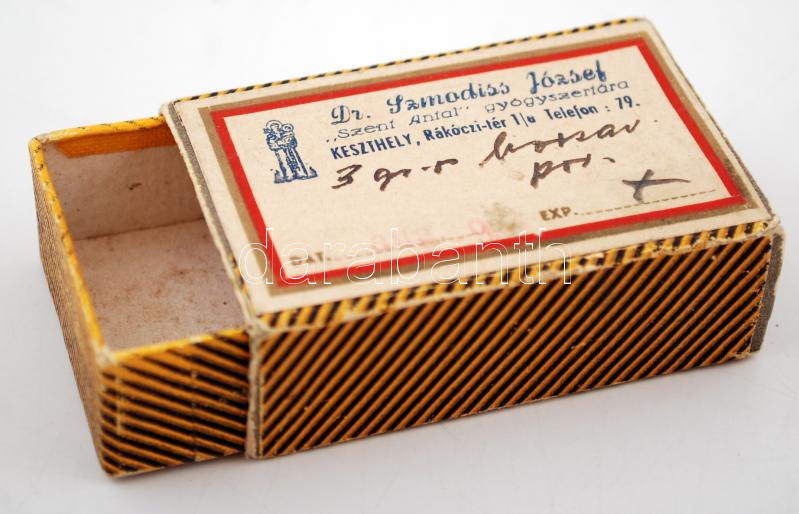 Dr. Szmodiss József
„Szent Antal" gyógyszertára
KESZTHELY, Rákóczi-tér 1/a Telefon: 79.
3 gr-os
por.
EXP.
darabanth